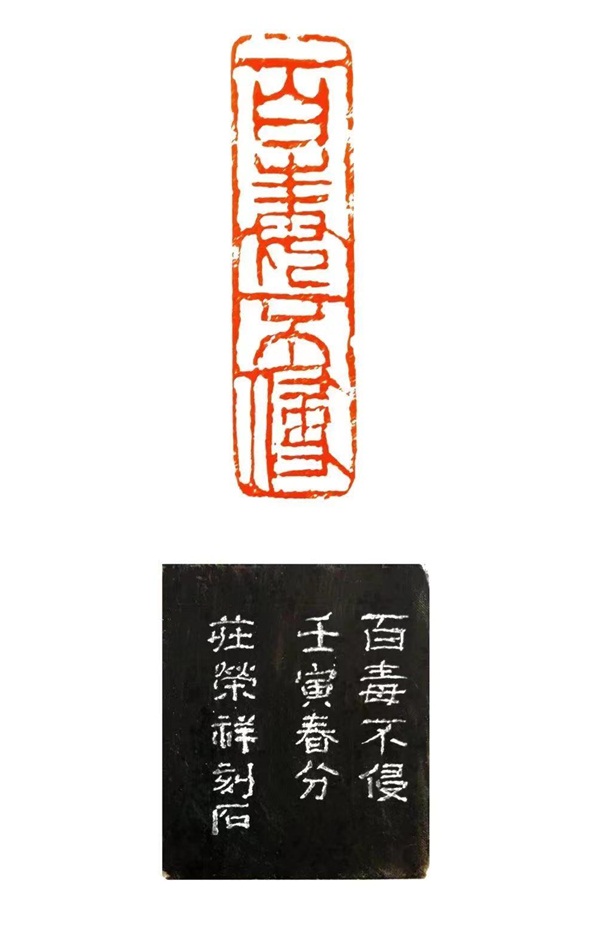 百毒不侵
百毒不侵
壬寅春分
莊榮祥刻石